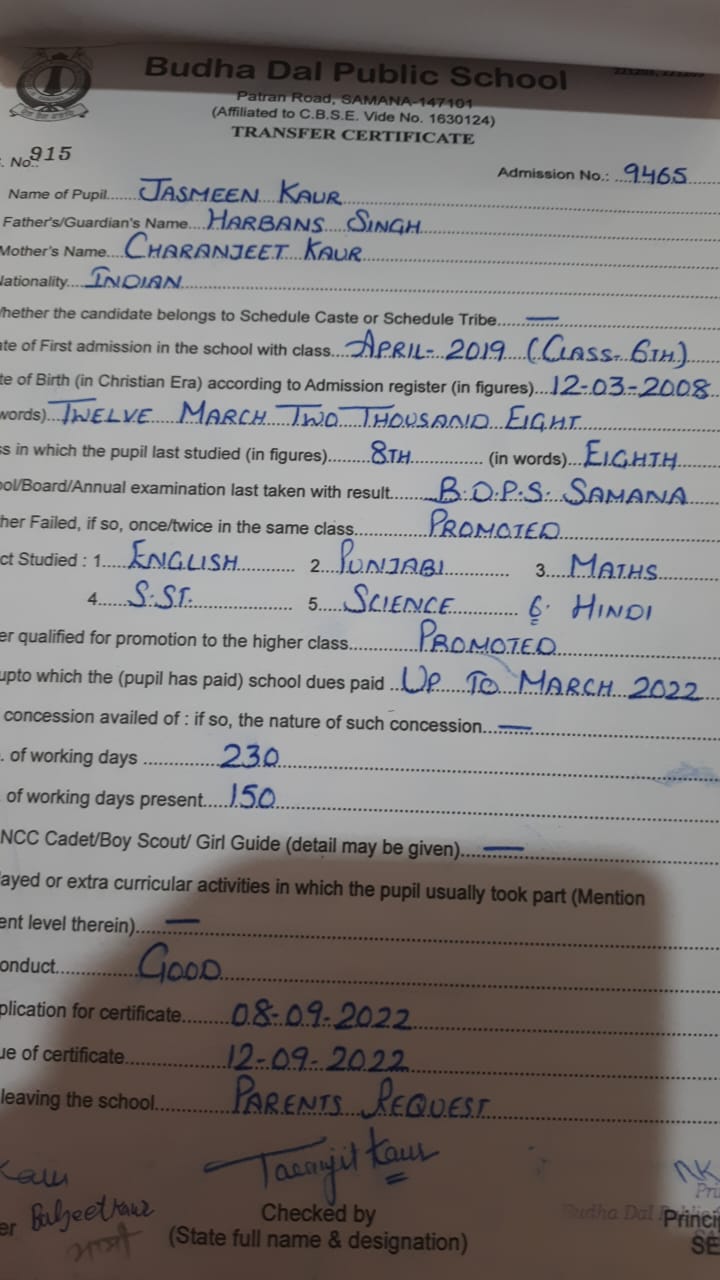 Budha Dal Public School
Patran Road, SAMANA-147101
(Affiliated to C.B.S.E. Vide No. 1630124)
TRANSFER CERTIFICATE
. No.. 915
Admission No.: 9465
Name of Pupil JASMEEN KAUR
Father's/Guardian's Name HARBANS SINGH
Mother's Name CHARANJEET KAUR
Nationality INDIAN
Whether the candidate belongs to Schedule Caste or Schedule Tribe —
ate of First admission in the school with class APRIL-2019 (CLASS-6TH)
te of Birth (in Christian Era) according to Admission register (in figures) 12-03-2008
words) TWELVE MARCH TWO THOUSAND EIGHT
ss in which the pupil last studied (in figures) 8TH (in words) EIGHTH
ool/Board/Annual examination last taken with result B.D.P.S. SAMANA
her Failed, if so, once/twice in the same class PROMOTED
ct Studied : 1 ENGLISH 2 PUNJABI 3 MATHS
4 S.ST. 5 SCIENCE 6. HINDI
er qualified for promotion to the higher class PROMOTED
upto which the (pupil has paid) school dues paid UP TO MARCH 2022
concession availed of : if so, the nature of such concession —
. of working days 230
of working days present 150
NCC Cadet/Boy Scout/ Girl Guide (detail may be given) —
ayed or extra curricular activities in which the pupil usually took part (Mention
ent level therein) —
onduct GOOD
plication for certificate 08-09-2022
ue of certificate 12-09-2022
leaving the school PARENTS REQUEST
Kaur
Kaur
NK
Pri
er
Checked by
Budha Dal
Princi
(State full name & designation)
SE